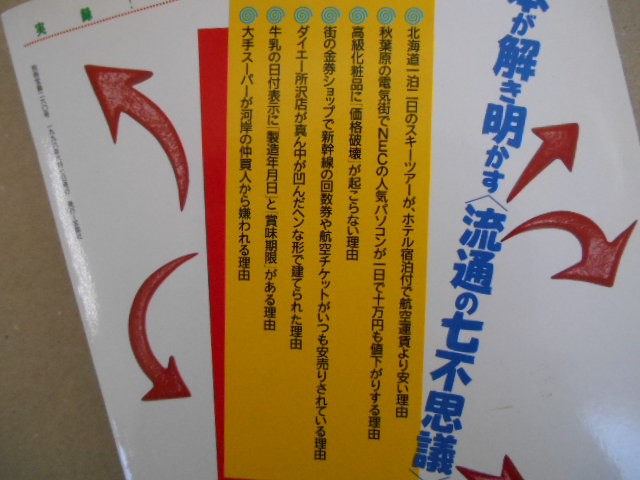 本が解き明かす〈流通の七不思議〉
北海道一泊二日のスキーツアーが、ホテル宿泊付で航空運賃より安い理由
秋葉原の電気街でNECの人気パソコンが一日で十万円も値下がりする理由
高級化粧品に「価格破壊」が起こらない理由
街の金券ショップで新幹線の回数券や航空チケットがいつも安売りされている理由
ダイエー所沢店が真ん中が凹んだヘンな形で建てられた理由
牛乳の日付表示に「製造年月日」と「賞味期限」がある理由
大手スーパーが河岸の仲買人から嫌われる理由
実録!